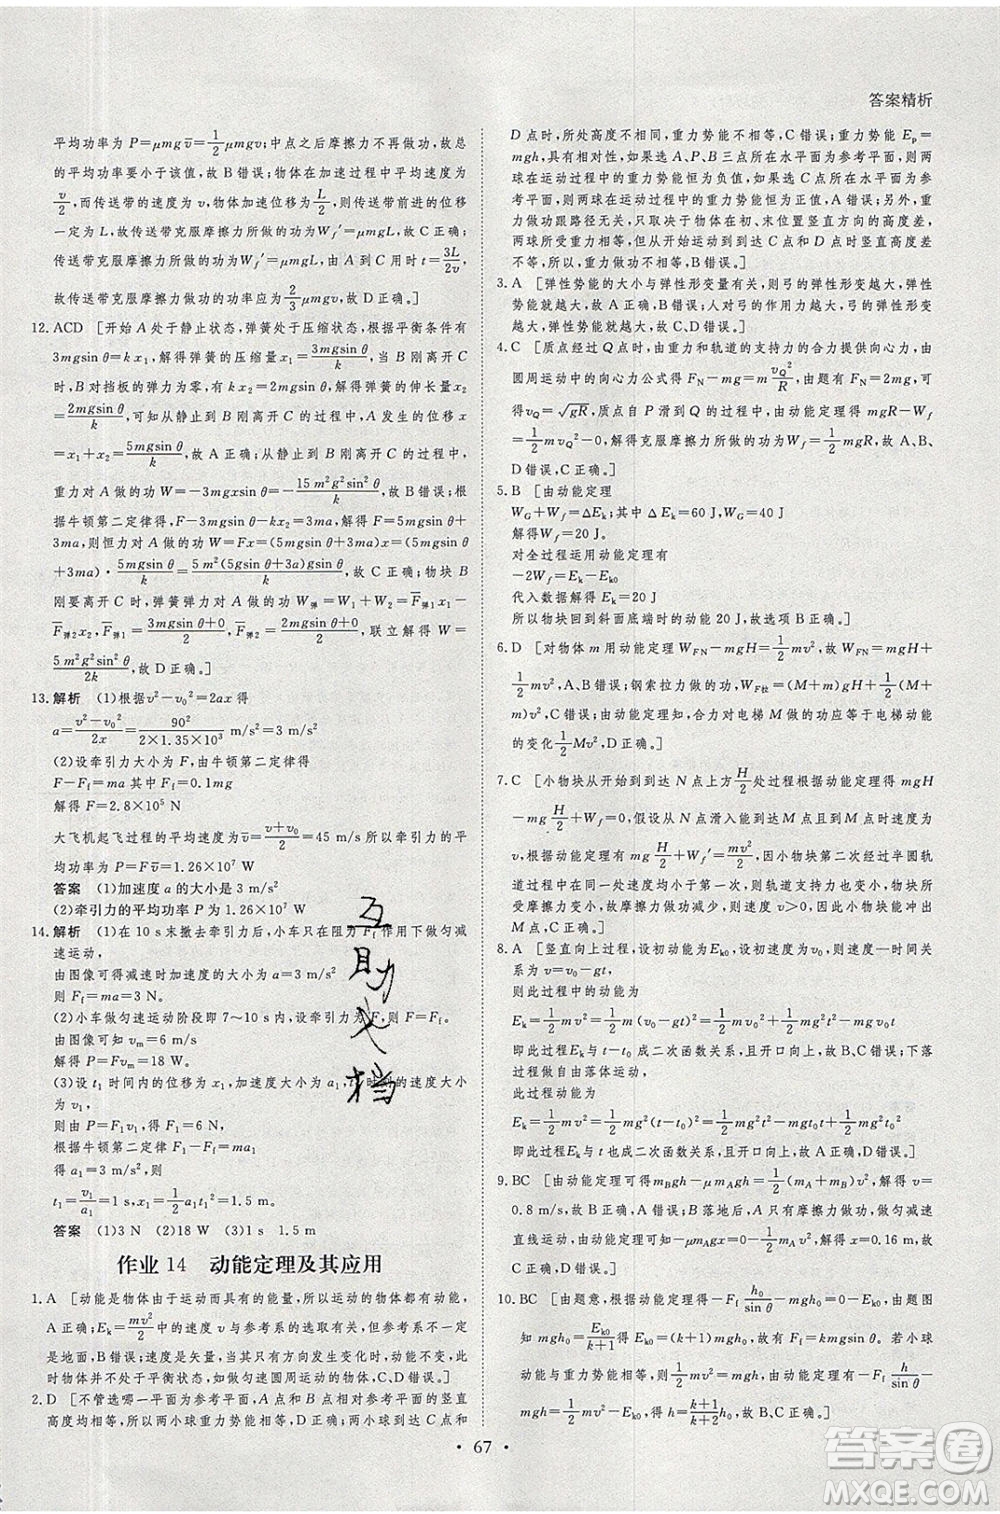 答案精析
平均功率为 P=μmgv̄=1/2 μmgv;中点之后摩擦力对物体做功
的平均功率要小于该值,故 B 错误;物体在加速过程中平均速度为
v/2,而传送带的速度为 v,物体加速位移为 L/2,传送带前进的位移
为 L,传送带克服摩擦力做的功为 Wf′=μmgL,故 C 错误;
传送带克服摩擦力做的功为 Wf′=μmgL,由 A 到 C 用时 t=3L/2v,
传送带克服摩擦力做功的功率应为 2/3 μmgv,故 D 正确。]
12.ACD [开始 A 处于静止状态,弹簧处于压缩状态,根据平衡条件有
3mgsin θ=kx₁,解得弹簧的压缩量 x₁=3mgsin θ/k;当物块
B 对挡板的弹力为零时,有 kx₂=2mgsin θ,解得弹簧的伸长量 x₂
=2mgsin θ/k,可知从静止到 B 刚离开 C 过程中,A 发生的位移 x
=x₁+x₂=5mgsin θ/k,故 A 正确;从静止到 B 刚离开 C 过程中,
重力对 A 做的功 W=-3mgxsin θ=-15m²g²sin²θ/k,故 B 错误;根
据牛顿第二定律得,F-3mgsin θ-kx₂=3ma,F=5mgsin θ+
3ma,则恒力对 A 做的功 W=Fx=(5mgsin θ+3ma)x=(5mgsin θ
+3ma)·5mgsin θ/k=5mgsin θ(5mgsin θ+3ma)/k,故 C 正确;物块 B
刚要离开 C 时,弹簧弹力做功 W弹=W₁+W₂=F̄弹1x₁-
F̄弹2x₂,F̄弹1=(3mgsin θ+0)/2,F̄弹2=(2mgsin θ+0)/2,联立解得 W弹=
5m²g²sin²θ/2k,故 D 正确。]
13.解析 (1)根据 v²-v₀²=2ax 得
a=(v²-v₀²)/2x=90²/(2×1.35×10³) m/s²=3 m/s²
(2)设牵引力大小为 F,由牛顿第二定律得
F-Ff=ma
解得 F=2.8×10⁵ N
大飞机起飞过程的平均速度为 v̄=(v+v₀)/2=45 m/s,所以牵引力的平
均功率为 P=Fv̄=1.26×10⁷ W
答案 (1)加速度 a 的大小是 3 m/s²
(2)牵引力的平均功率 P 为 1.26×10⁷ W
14.解析 (1)在 10 s 末撤去牵引力后,小车只在阻力 Ff 作用下做匀减
速运动,
由图像可得减速时加速度的大小为 a=2 m/s²
则 Ff=ma=3 N
(2)小车做匀速运动阶段即 7~10 s 内,设牵引力为 F,则 F=Ff.
由图像可知 vm=6 m/s
解得 P=Fvm=18 W
(3)设 t₁ 时间内的位移为 x₁,加速度大小为 a₁,t₁ 时刻的速度大小
为 v₁,
则由 P=F₁v₁ 得 F₁=6 N,
根据牛顿第二定律得 F₁-Ff=ma₁
得 a₁=2 m/s²,则
t₁=v₁/a₁=1 s,x₁=1/2 a₁t₁²=1.5 m.
答案 (1)3 N (2)18 W (3)1 s 1.5 m
作业 14 动能定理及其应用
1.A [动能是物体由于运动而具有的能量,所以运动的物体都有动能,
A 正确;由于 Ek=mv²/2,而速度 v 与参考系的选取有关,但参考系不一定
是地面,B 错误;速度是矢量,当动能不变时,速度的方向可能变化,此
时物体并不处于平衡状态,如做匀速圆周运动的物体,C、D 错误。]
2.D [不管选哪一平面为参考平面,A 点和 B 点相对参考平面的竖直
高度均大于 0,所以两小球重力势能均大于 0,A 点、B 点、C 点和
D 点时,所处高度不相同,重力势能不相等,A、C 错误;重力势能 Ep=
mgh,具有相对性,如果选择 A、B 三点所在水平面为参考平面,则两
球在运动过程中的重力势能恒为负值,如果选择 D 点所在水平面为
参考平面,则两球在运动过程中的重力势能恒为正值,A 错误;另外,重
力做功跟路径无关,只取决于物体在初、末位置竖直方向的高度差,
两球从开始运动到到达 C 点或由开始运动到 D 点时竖直高度差不
等,所以,重力做功不相等,B 错误。]
3.A [弹性势能的大小与弹性形变量有关,弓的弹性形变越大,弹性势
能就越大,A 正确,B 错误;人对弓的作用力越大,弓的弹性形变越大,弹
性势能就越大,C、D 错误。]
4.C [质点经过 Q 点时,由重力和轨道的支持力的合力提供向心力,由
圆周运动中的向心力公式得 FN-mg=m vQ²/R,由题有 FN=2mg,可
得 vQ=√gR,质点自 P 滑到 Q 的过程中,由动能定理得 mgR-Wf
=1/2 mvQ²-0,解得克服摩擦力所做的功为 Wf=1/2 mgR,故 A、B、
D 错误,C 正确。]
5.B [由动能定理
WG+Wf=ΔEk=60 J,WG=40 J
解得 Wf=20 J。
对全过程运用动能定理有
-2Wf=Ek-Ek0
代入数据解得 Ek=20 J
所以物块回到斜面底端时的动能 20 J,故选项 B 正确。]
6.D [对物体 m 用动能定理 WFN-mgH=1/2 mv²,故 WFN=mgH+
1/2 mv²,A、B 错误;钢索拉力做的功,WF拉=(M+m)gH+1/2(M+
m)v²,C 错误;由动能定理知,合力对电梯 M 做的功应等于电梯动能
的变化 1/2 Mv²,D 正确。]
7.C [小物块从开始到到达 N 点上方 H/2 处过程根据动能定理得 mgH
-mg H/2+Wf=0,假设从 N 点滑入能到达 M 点且到达 M 点时速度为
v,则由动能定理有 mg H/2+Wf′=mv²/2,因小物块第二次经过半圆轨
道时的平均速度均小于第一次,故所受平均摩擦力小于第一次,即第
二次克服摩擦力做功小于第一次,则 v>0,所以,小物块能冲出
M 点,C 正确。]
8.A [竖直向上过程,设初动能为 Ek0,设初速度为 v₀,则速度—时间关
系为 v=v₀-gt
则此过程中的动能为
Ek=1/2 mv²=1/2 m(v₀-gt)²=1/2 mv₀²+1/2 mg²t²-mgv₀t
即此过程 Ek 与 t-t₀ 成二次函数关系,且开口向上,故 B、C 错误;下落
过程做自由落体运动,
此过程动能为
Ek=1/2 mv²=1/2 mg²(t-t₀)²=1/2 mg²t²-mg²t₀t+1/2 mg²t₀²
即此过程中,Ek 与 t 也成二次函数关系,且开口向上,故 A 正确,D 错误。]
9.BC [由动能定理可得 mBgh-μmAgh=1/2(mA+mB)v²,解得 v=
0.8 m/s,故 A 错误,B 正确;B 落地后,A 在摩擦力作用下做匀减速
直线运动,-μmAgx=0-1/2 mAv²,解得 x=0.16 m,故 C 正确,D 错误。]
10.BC [由题意,根据动能定理得-Ff h₀/sin θ-mgh₀=0-Ek0,由题图
知:mgh₀=Ek0/(k+1)=(k/k)mgh₀,所以 Ff=mgksin θ。若小球
动能与势能相等时,由动能定理得-mgh-Ff h/sin θ=
mgh=1/2 mv²,1/2 mv²-Ek0,解得 h=(k+1)/(k+2) h₀,故 B、C 正确。]
互助文档
67
答案圈
MXQE.COM